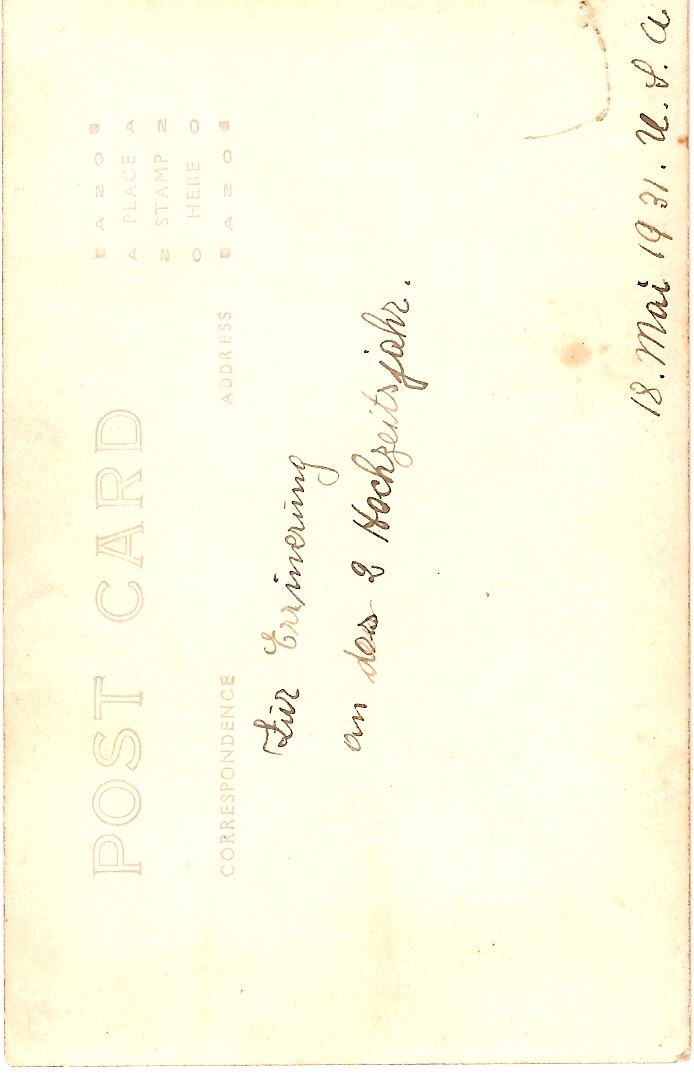 POST CARD
CORRESPONDENCE
ADDRESS
AZO
A PLACE A
Z STAMP Z
O HERE O
AZO
Zur Errinerung
an des 2 Hochzeitsjahr.
18. Mai 1931. U. S. A